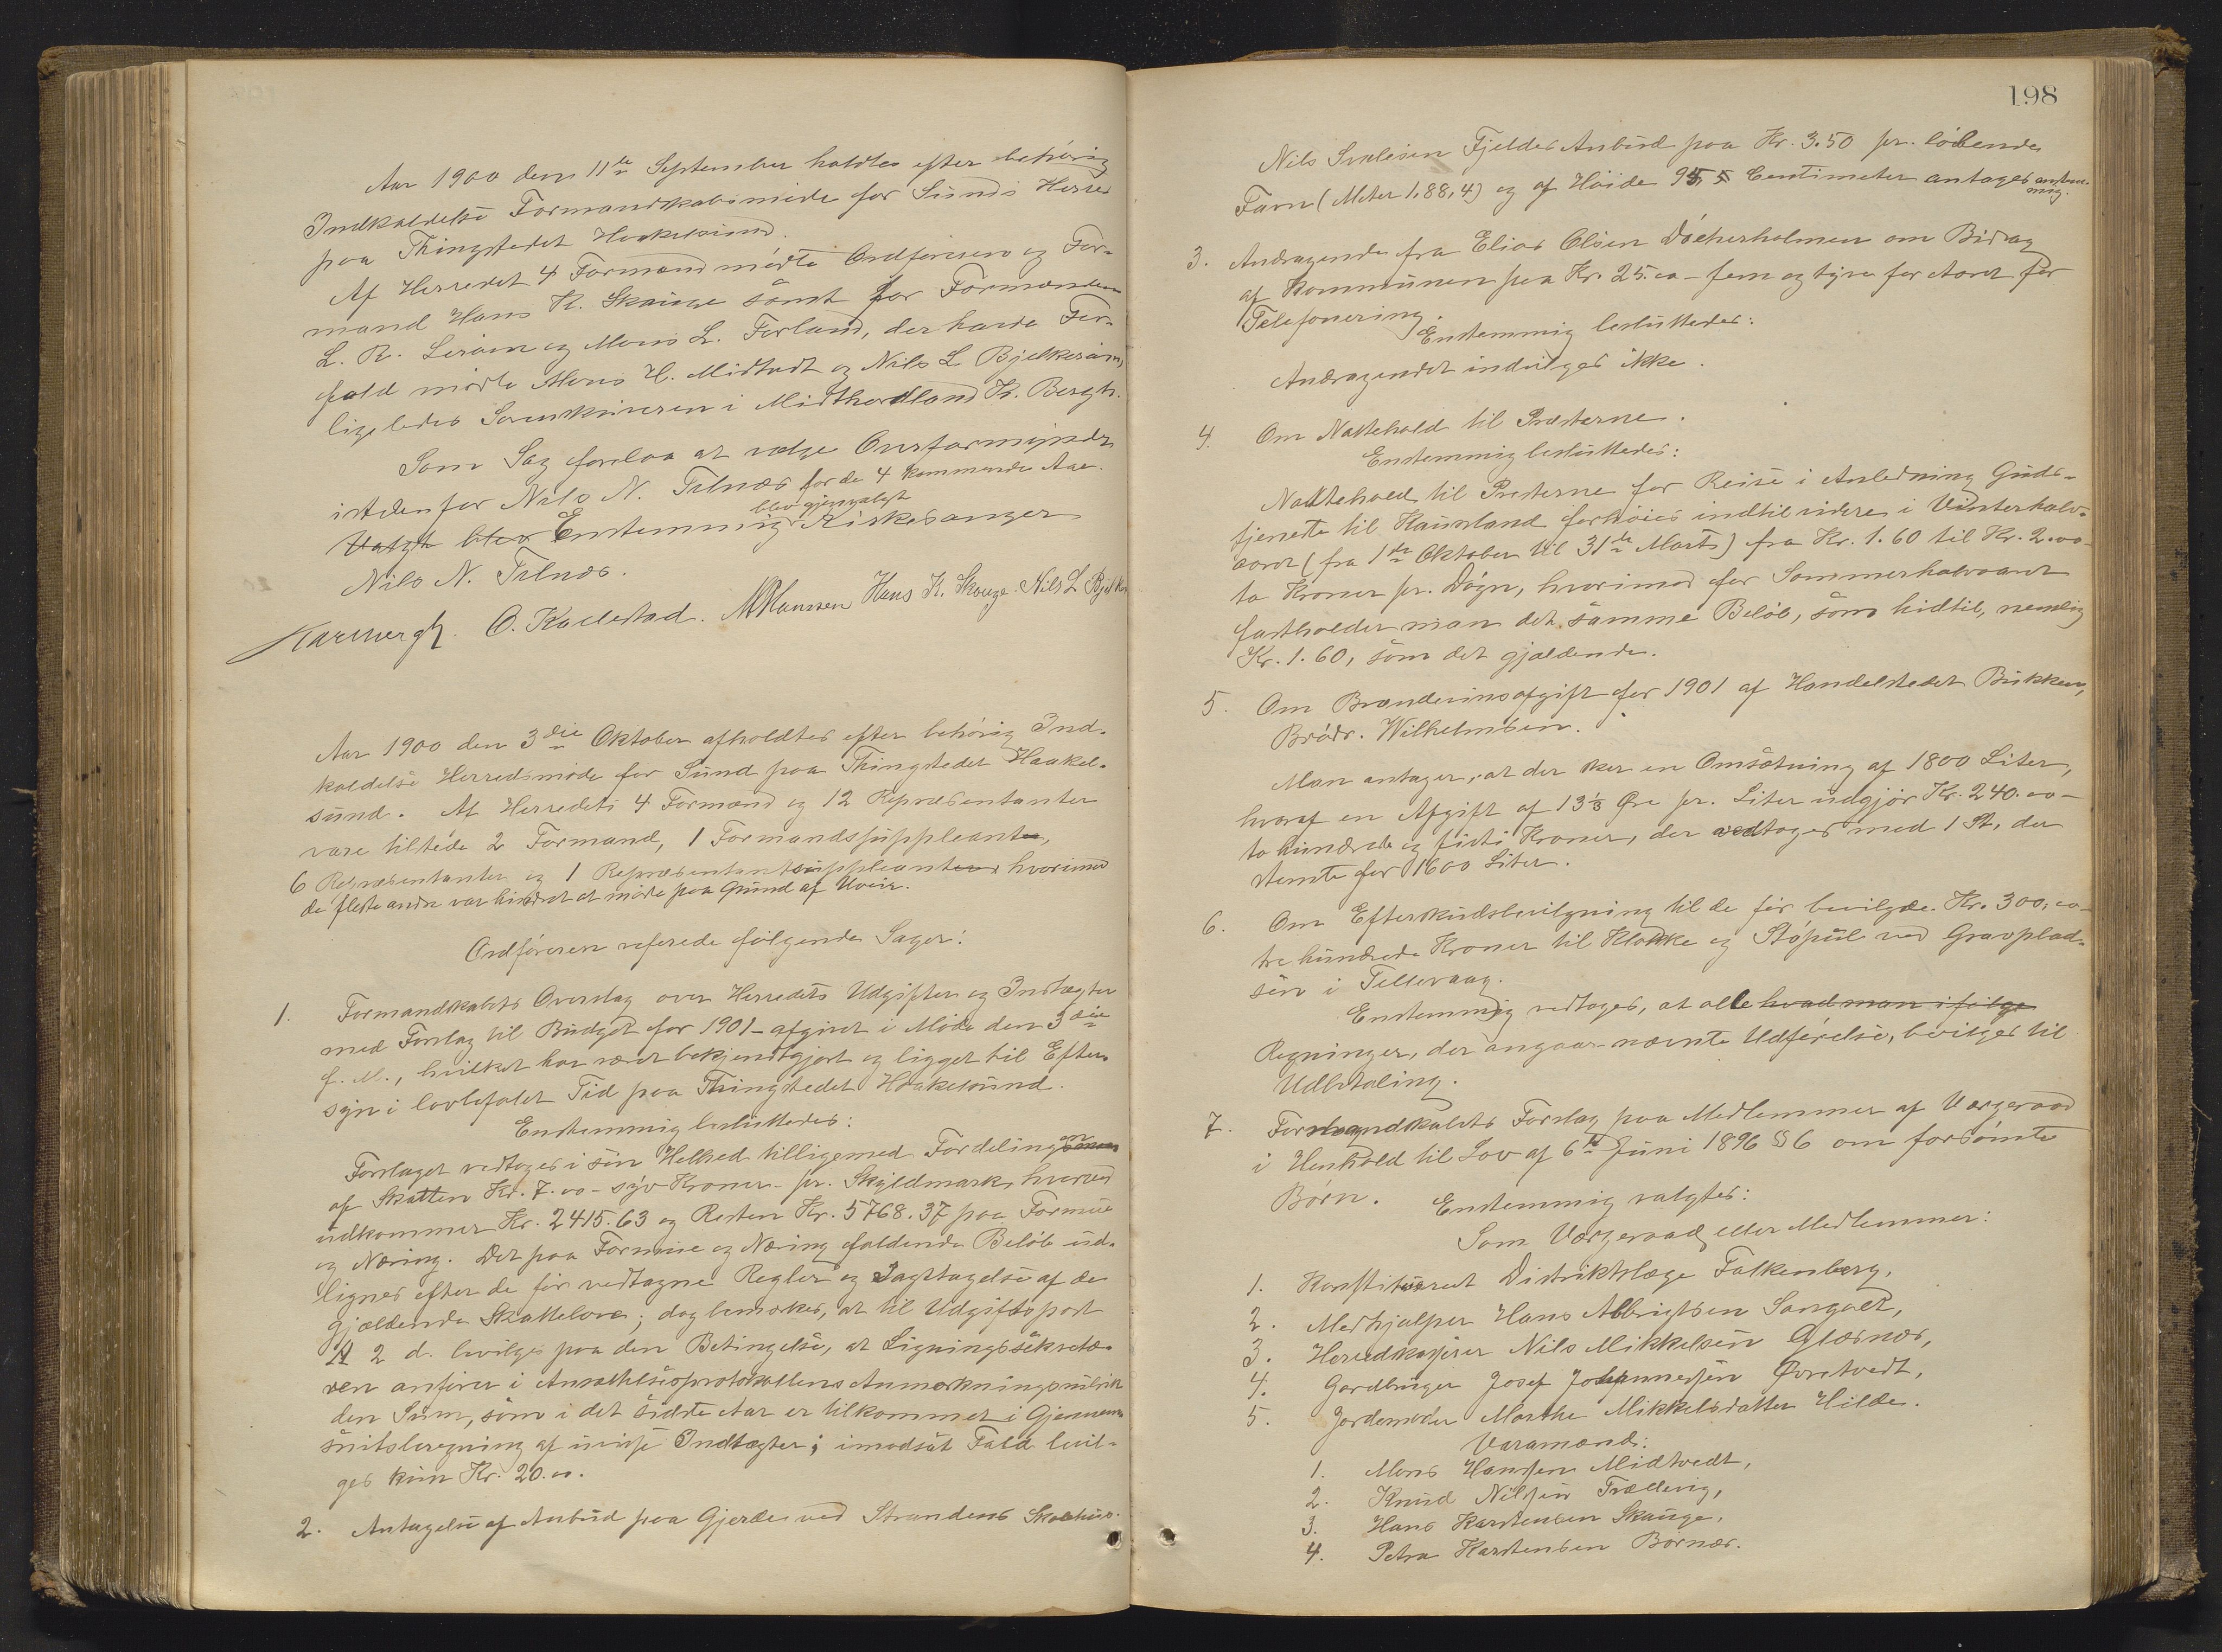 Aar 1900 den 11te September holdtes efter behörig
Indkaldelse Formandskabsmöde for Sunds Herred
paa Thingstedet Haakelsund.
Af Herredet 4 Formænd mödte Ordföreren og For-
mand Hans K. Skauge samt for Formændene
L. R. Leröen og Mons L. Forland, der havde For-
fald mödte Mons H. Midtvedt og Nils L. Bjelkeröen,
ligeledes Sorenskriveren i Midthordland K. Bergh.
Som Sag forelaa at vælge Overformynder
istedenfor Nils N. Telnæs for de 4 kommende Aar.
Valgt blev Enstemmig blev gjenvalgt
Nils N. Telnæs.
O. Kallestad. M Hanssen Hans K. Skauge. Nils L. Bjelker
Aar 1900 den 3die Oktober afholdtes efter behörig Ind-
kaldelse Herredsmöde for Sund paa Thingstedet Haakel-
sund. Af Herredets 4 Formænd og 12 Repræsentanter
vare tilstede 2 Formænd, 1 Formandssuppleanter,
6 Repræsentanter og 1 Repræsentantsuppleanter hvorimod
de fleste andre var hindret at möde paa Grund af Uveir.
Ordföreren referede fölgende Sager:
1. Formandskabets Overslag over Herredets Udgifter og Indtægter
med Forslag til Budget for 1901 – afgivet i Möde den 3die
f. M., hvilket har været bekjendtgjort og ligget til Efter-
syn i lovbefalet Tid paa Thingstedet Haakelsund.
Enstemmig besluttedes:
Forslaget vedtoges i sin Helhed tilligemed Fordelingen
af Skatten Kr. 7.00 – syv Kroner – pr. Skyldmark, hvorved
udkommer Kr. 2415.63 og Resten Kr. 5768.37 paa Formue
og Næring. Det paa Formue og Næring faldende Belöb ud-
lignes efter de för vedtagne Regler og Iagttagelse af de
gjældende Skattelove; dog bemærkes, at til Udgiftspost
A 2 d. bevilges paa den Betingelse, at Ligningssekretæ-
ren anförer i Ansættelsesprotokollens Anmærkningsrubrik
den Sum, som i det sidste Aar er tilkommet i Gjennem-
snitsberegning af uvisse Indtægter; imodsat Fald bevil-
ges kun Kr. 20.00.
2. Antagelse af Anbud paa Gjerde ved Strandens Skolehus.
198
Nils Fjeldes Anbud paa Kr. 3.50 pr. löbende
Favn (Meter 1,88,4) og af Höide Centimeter antages enstem-
mig.
3. Andragende fra Elias Olsen om Bidrag
af Kommunen paa Kr. 25.00 – fem og tyve for Aaret for
Telefonering.
Enstemmig besluttedes:
Andragendet indvilges ikke.
4. Om Nattehold til Præsterne.
Enstemmig besluttedes:
Nattehold til Presterne for Reise i Anledning Guds-
tjeneste til Kausland forhöies indtil videre i Vinterhalv-
aaret (fra 1ste Oktober til 31te Marts) fra Kr. 1.60 til Kr. 2.00 –
to Kroner pr. Dögn, hvorimod for Sommerhalvaaret
fastholder man det samme Belöb, som hidtil, nemlig
Kr. 1.60, som det gjældende.
5. Om Brændevinsafgift for 1901 af Handelstedet Bukken,
Brödr. Wilhelmsen.
Man antager, at der sker en Omsætning af 1800 Liter,
hvoraf en Afgift af 13⅓ Öre pr. Liter udgjör Kr. 240.00 –
to hundrede og firti Kroner, der vedtoges med 1 St, der
stemte for 1600 Liter.
6. Om Efterskudsbevilgning til de för bevilgede Kr. 300,00 –
tre hundrede Kroner til Klokke og Stöpul ved Gravplad-
sen i Tellevaag.
Enstemmig vedtoges, at alle hvad man ifölge
Regninger, der angaar nævnte Udförelse, bevilges til
Udbetaling.
7. Formandskabets Forslag paa Medlemmer af Værgeraad
i Henhold til Lov af 6te Juni 1896 § 6 om forsömte
Börn. Enstemmig valgtes:
Som Værgeraad eller Medlemmer:
1. Konstitueret Distriktslæge Falkenberg,
2. Medhjælper Hans Albrigtsen Sangolt,
3. Herredskasserer Nils Mikkelsen Glæsnæs,
4. Gardbruger Josef Johannessen Övretvedt,
5. Jordemoder Marthe Mikkelsdatter Hilde.
Varamænd:
1. Mons Hanssen Midtvedt,
2. Knud Nilssen Trællevig,
3. Hans Karstensen Skauge,
4. Petra Karstensen Börnæs.